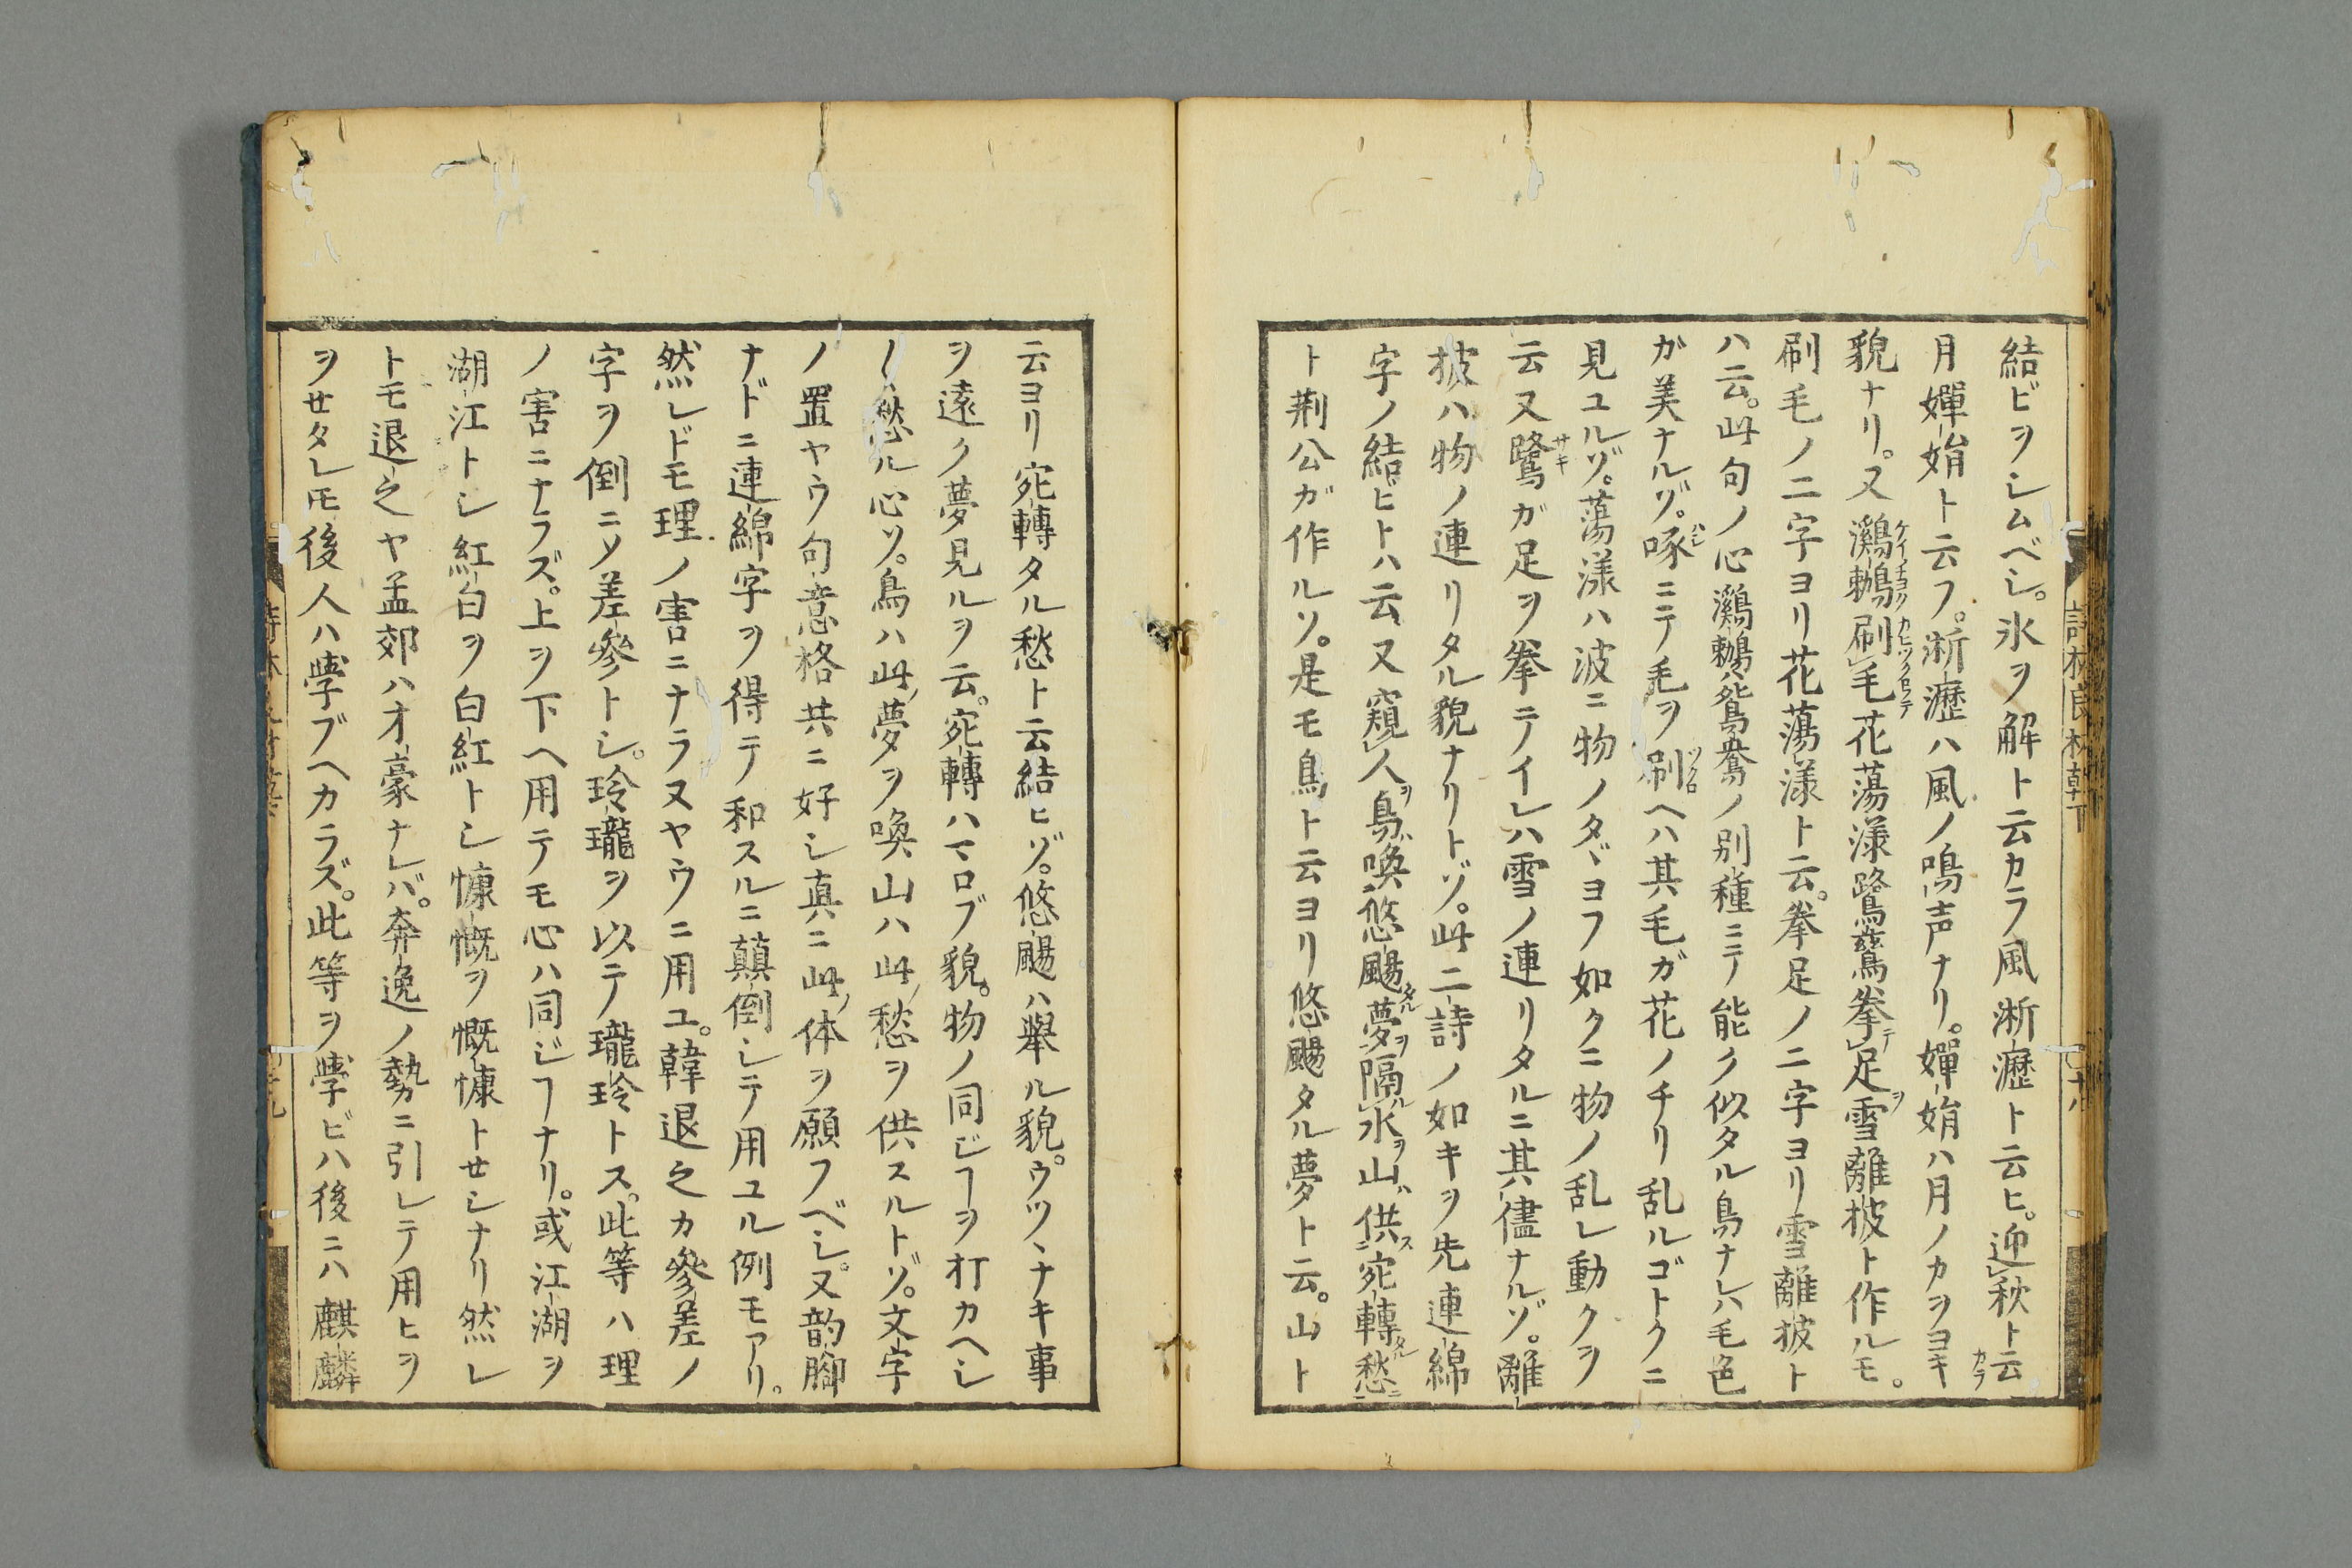 結ビヲシムベシ。氷ヲ解ト云カラ風淅瀝ト云ヒ。迎秋ト云カラ
月嬋娟ト云フ。淅瀝ハ風ノ鳴声ナリ。嬋娟ハ月ノカヲヨキ
貌ナリ。又鸂鶒刷毛花蕩漾鷺鷥拳足雪離披ト作ルモ。
刷毛ノ二字ヨリ花蕩漾ト云。拳足ノ二字ヨリ雪離披ト
ハ云。此句ノ心鸂鶒ハ鴛鴦ノ別種ニテ能ク似タル鳥ナレハ毛色
ガ美ナルゾ。啄ニテ毛ヲ刷ヘハ其毛ガ花ノチリ乱ルゴトクニ
見ユルゾ。蕩漾ハ波ニ物ノタヾヨフ如クニ物ノ乱レ動クヲ
云又鷺ガ足ヲ拳テイレハ雪ノ連リタルニ其儘ナルゾ。離
披ハ物ノ連リタル貌ナリトゾ。此二詩ノ如キヲ先連綿
字ノ結ビトハ云又窺人鳥喚悠颺夢隔水山供宛轉愁
ト荆公ガ作ルソ。是モ鳥ト云ヨリ悠颺タル夢ト云。山ト
云ヨリ宛轉タル愁ト云結ヒゾ。悠颺ハ舉ル貌。ウツヽナキ事
ヲ遠ク夢見ルヲ云。宛轉ハマロブ貌。物ノ同ジヿヲ打カヘシ
〳〵愁ル心ソ。鳥ハ此ノ夢ヲ喚山ハ此ノ愁ヲ供スルトゾ。文字
ノ置ヤウ句意格共ニ好シ真ニ此ノ体ヲ願フベシ。又韵脚
ナドニ連綿字ヲ得テ和スルニ顛倒シテ用ユル例モアリ。
然レドモ理ノ害ニナラヌヤウニ用ユ。韓退之カ參差ノ
字ヲ倒ニソ差參トシ。玲瓏ヲ以テ瓏玲トス。此等ハ理
ノ害ニナラズ。上ヲ下ヘ用テモ心ハ同ジヿナリ。或江湖ヲ
湖江トシ紅白ヲ白紅トシ慷慨ヲ慨慷トセシナリ然レ
トモ退之ヤ孟郊ハ才豪ナレバ。奔逸ノ勢ニ引レテ用ヒヲ
ヲセタレ𪜈後人ハ學ブヘカラズ。此等ヲ學ビハ後ニハ麒麟